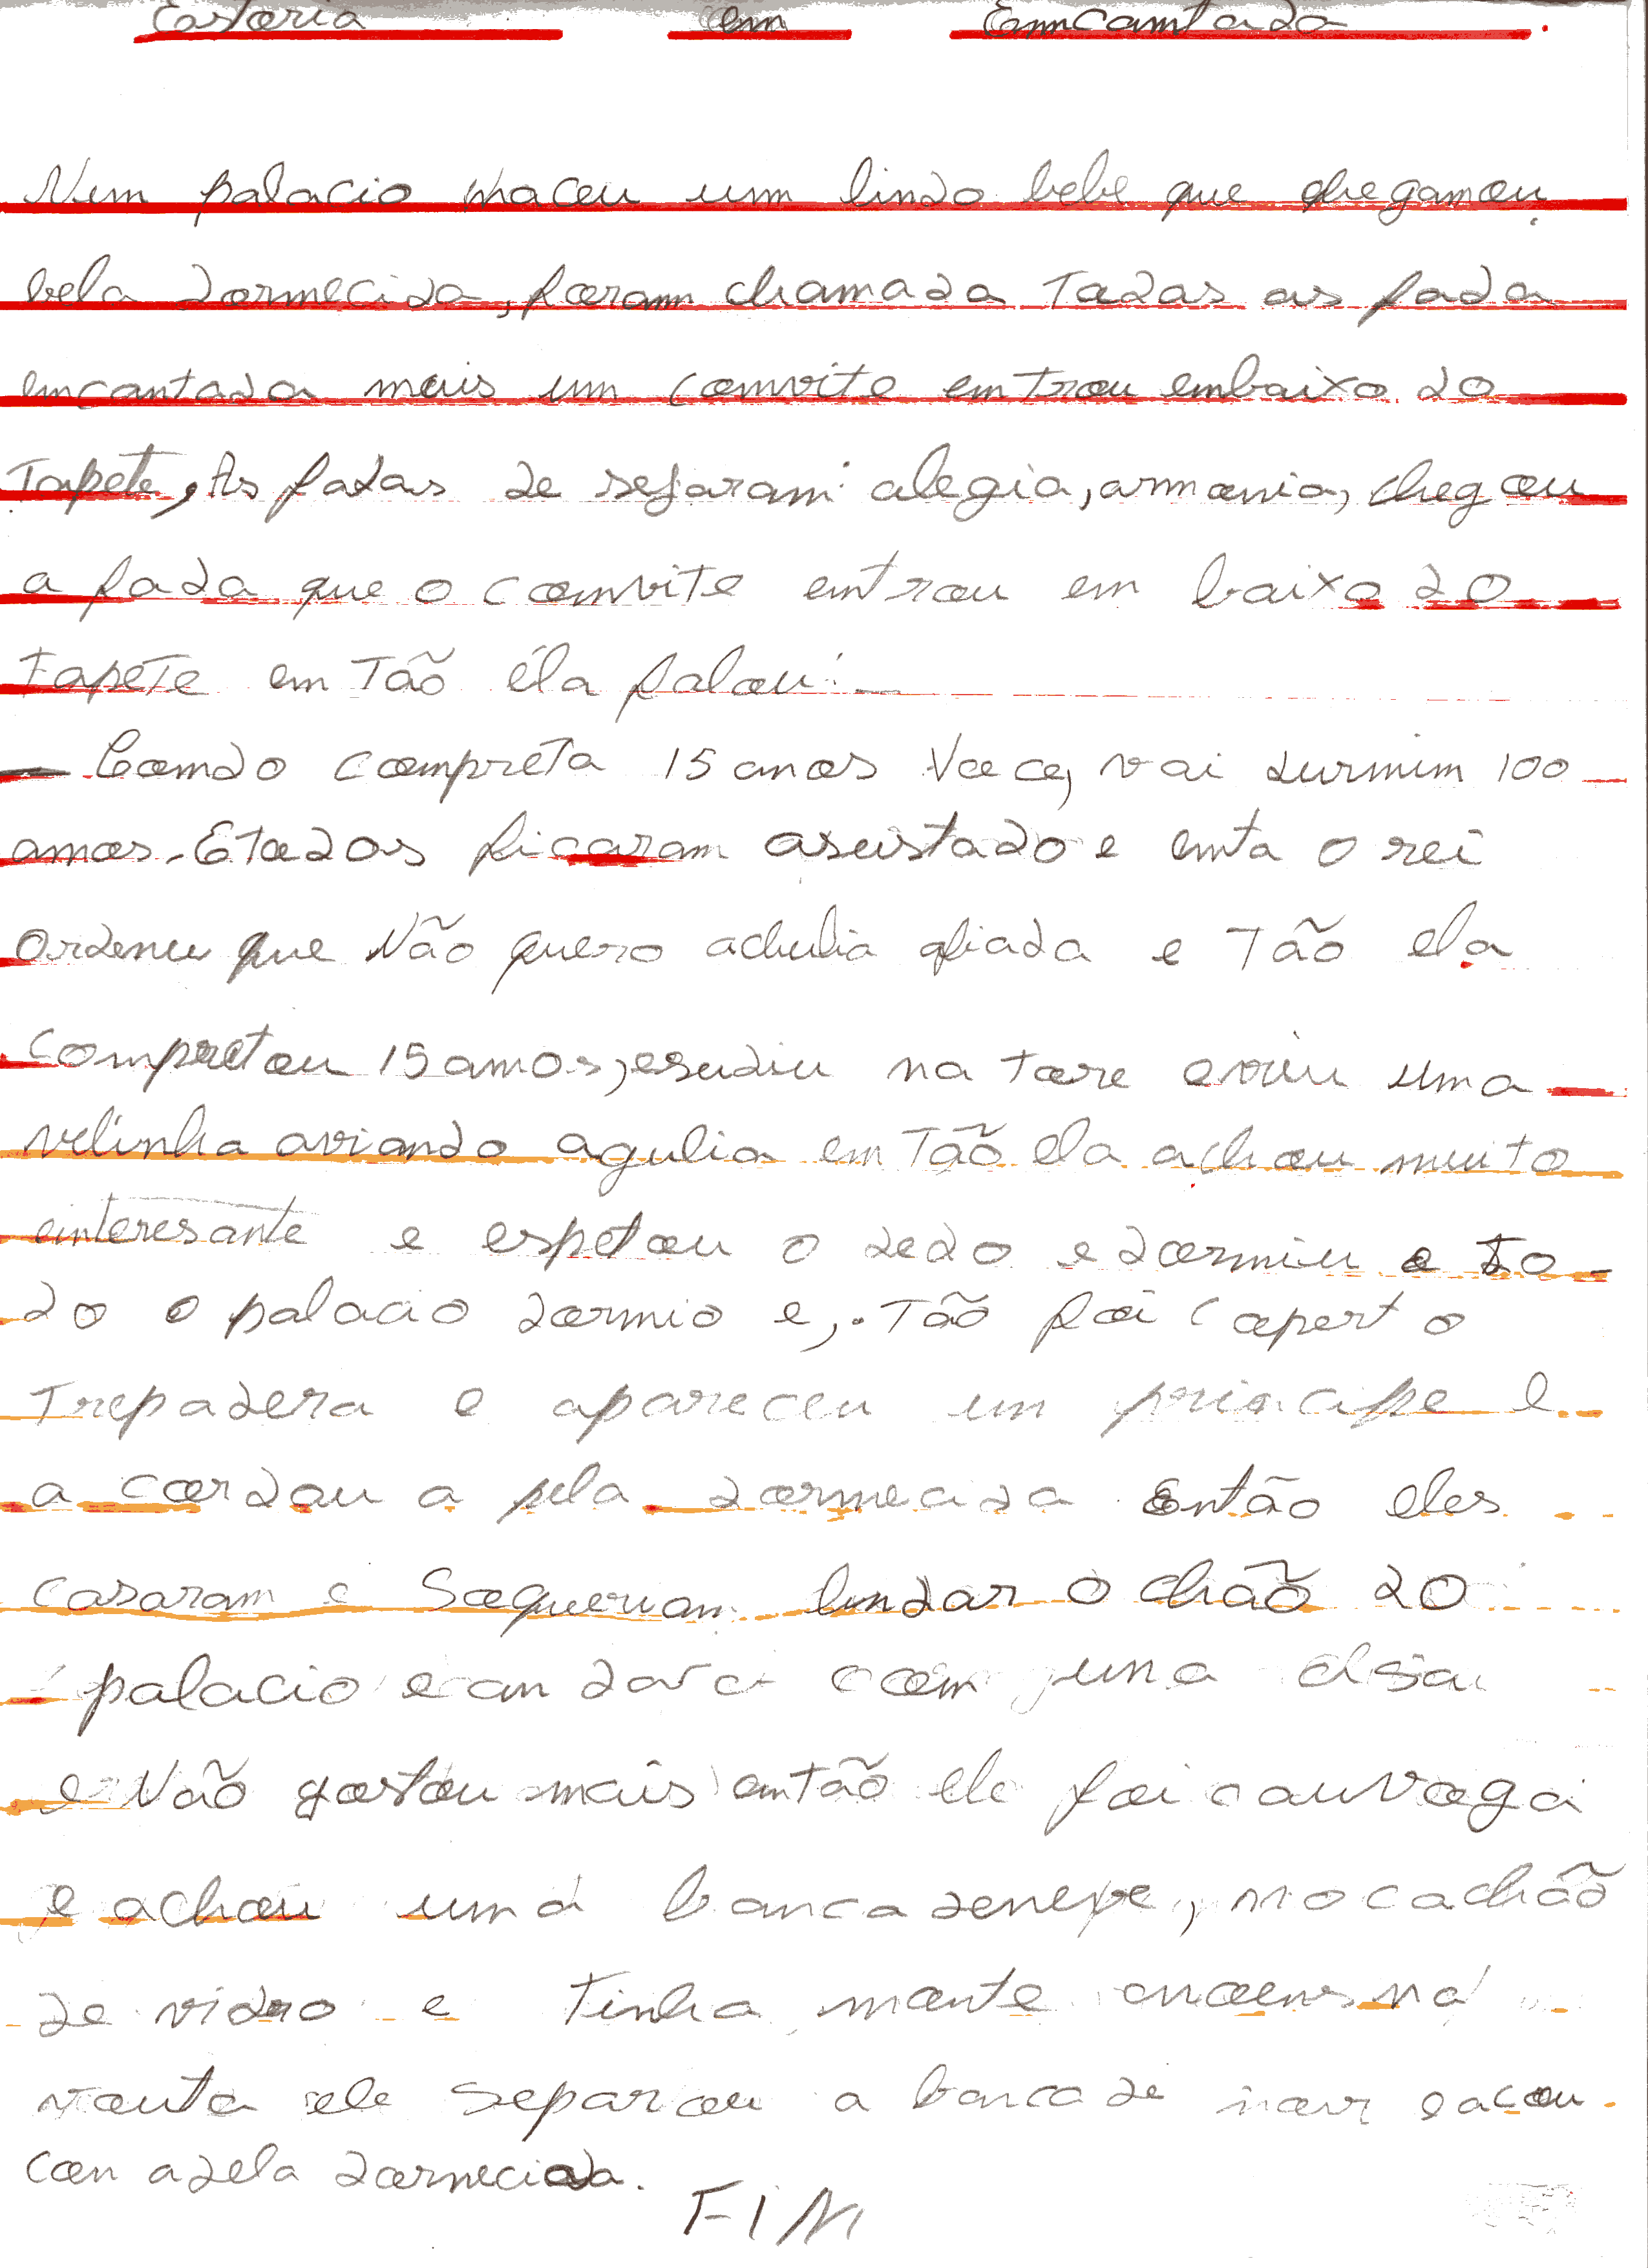 Estoria em Emcamtada.
Num palacio naceu um lindo bebe que chegamou
bela dormecida, foram chamada todas as fada
emcantada mais um comvite emtrou embaixo do
Tapete, As fadas de sejaram: alegia, armonia, chegou
a fada que o comvite entrou em baixo do
tapete em Tão éla falou: _
— Comdo compreta 15 anos Voce, vai durmim 100
amos. E todos ficaram asustado e emta o rei
Ordeneu que Não quero achulia afiada e Tão ela
compretou 15 amos, esudiu na Tore e viu uma
velinha aviando agulia em Tão ela achou muito
einteresante e espetou o dedo e dormiu e to-
do o palacio dormio e, Tão foi capert o
Trepadera e apareceu um principe e
a cordou a pela dormecida Então eles
casaram e Soqueriam lindar o chão do
palacio e andava com uma
e Não gostou mais emtão ele foi cauvaga
e achou uma banca deneve, no cachão
de vidro e Tinha mante na
vouta ele separou a banca de e acou
com a dela dormecida.
FIM